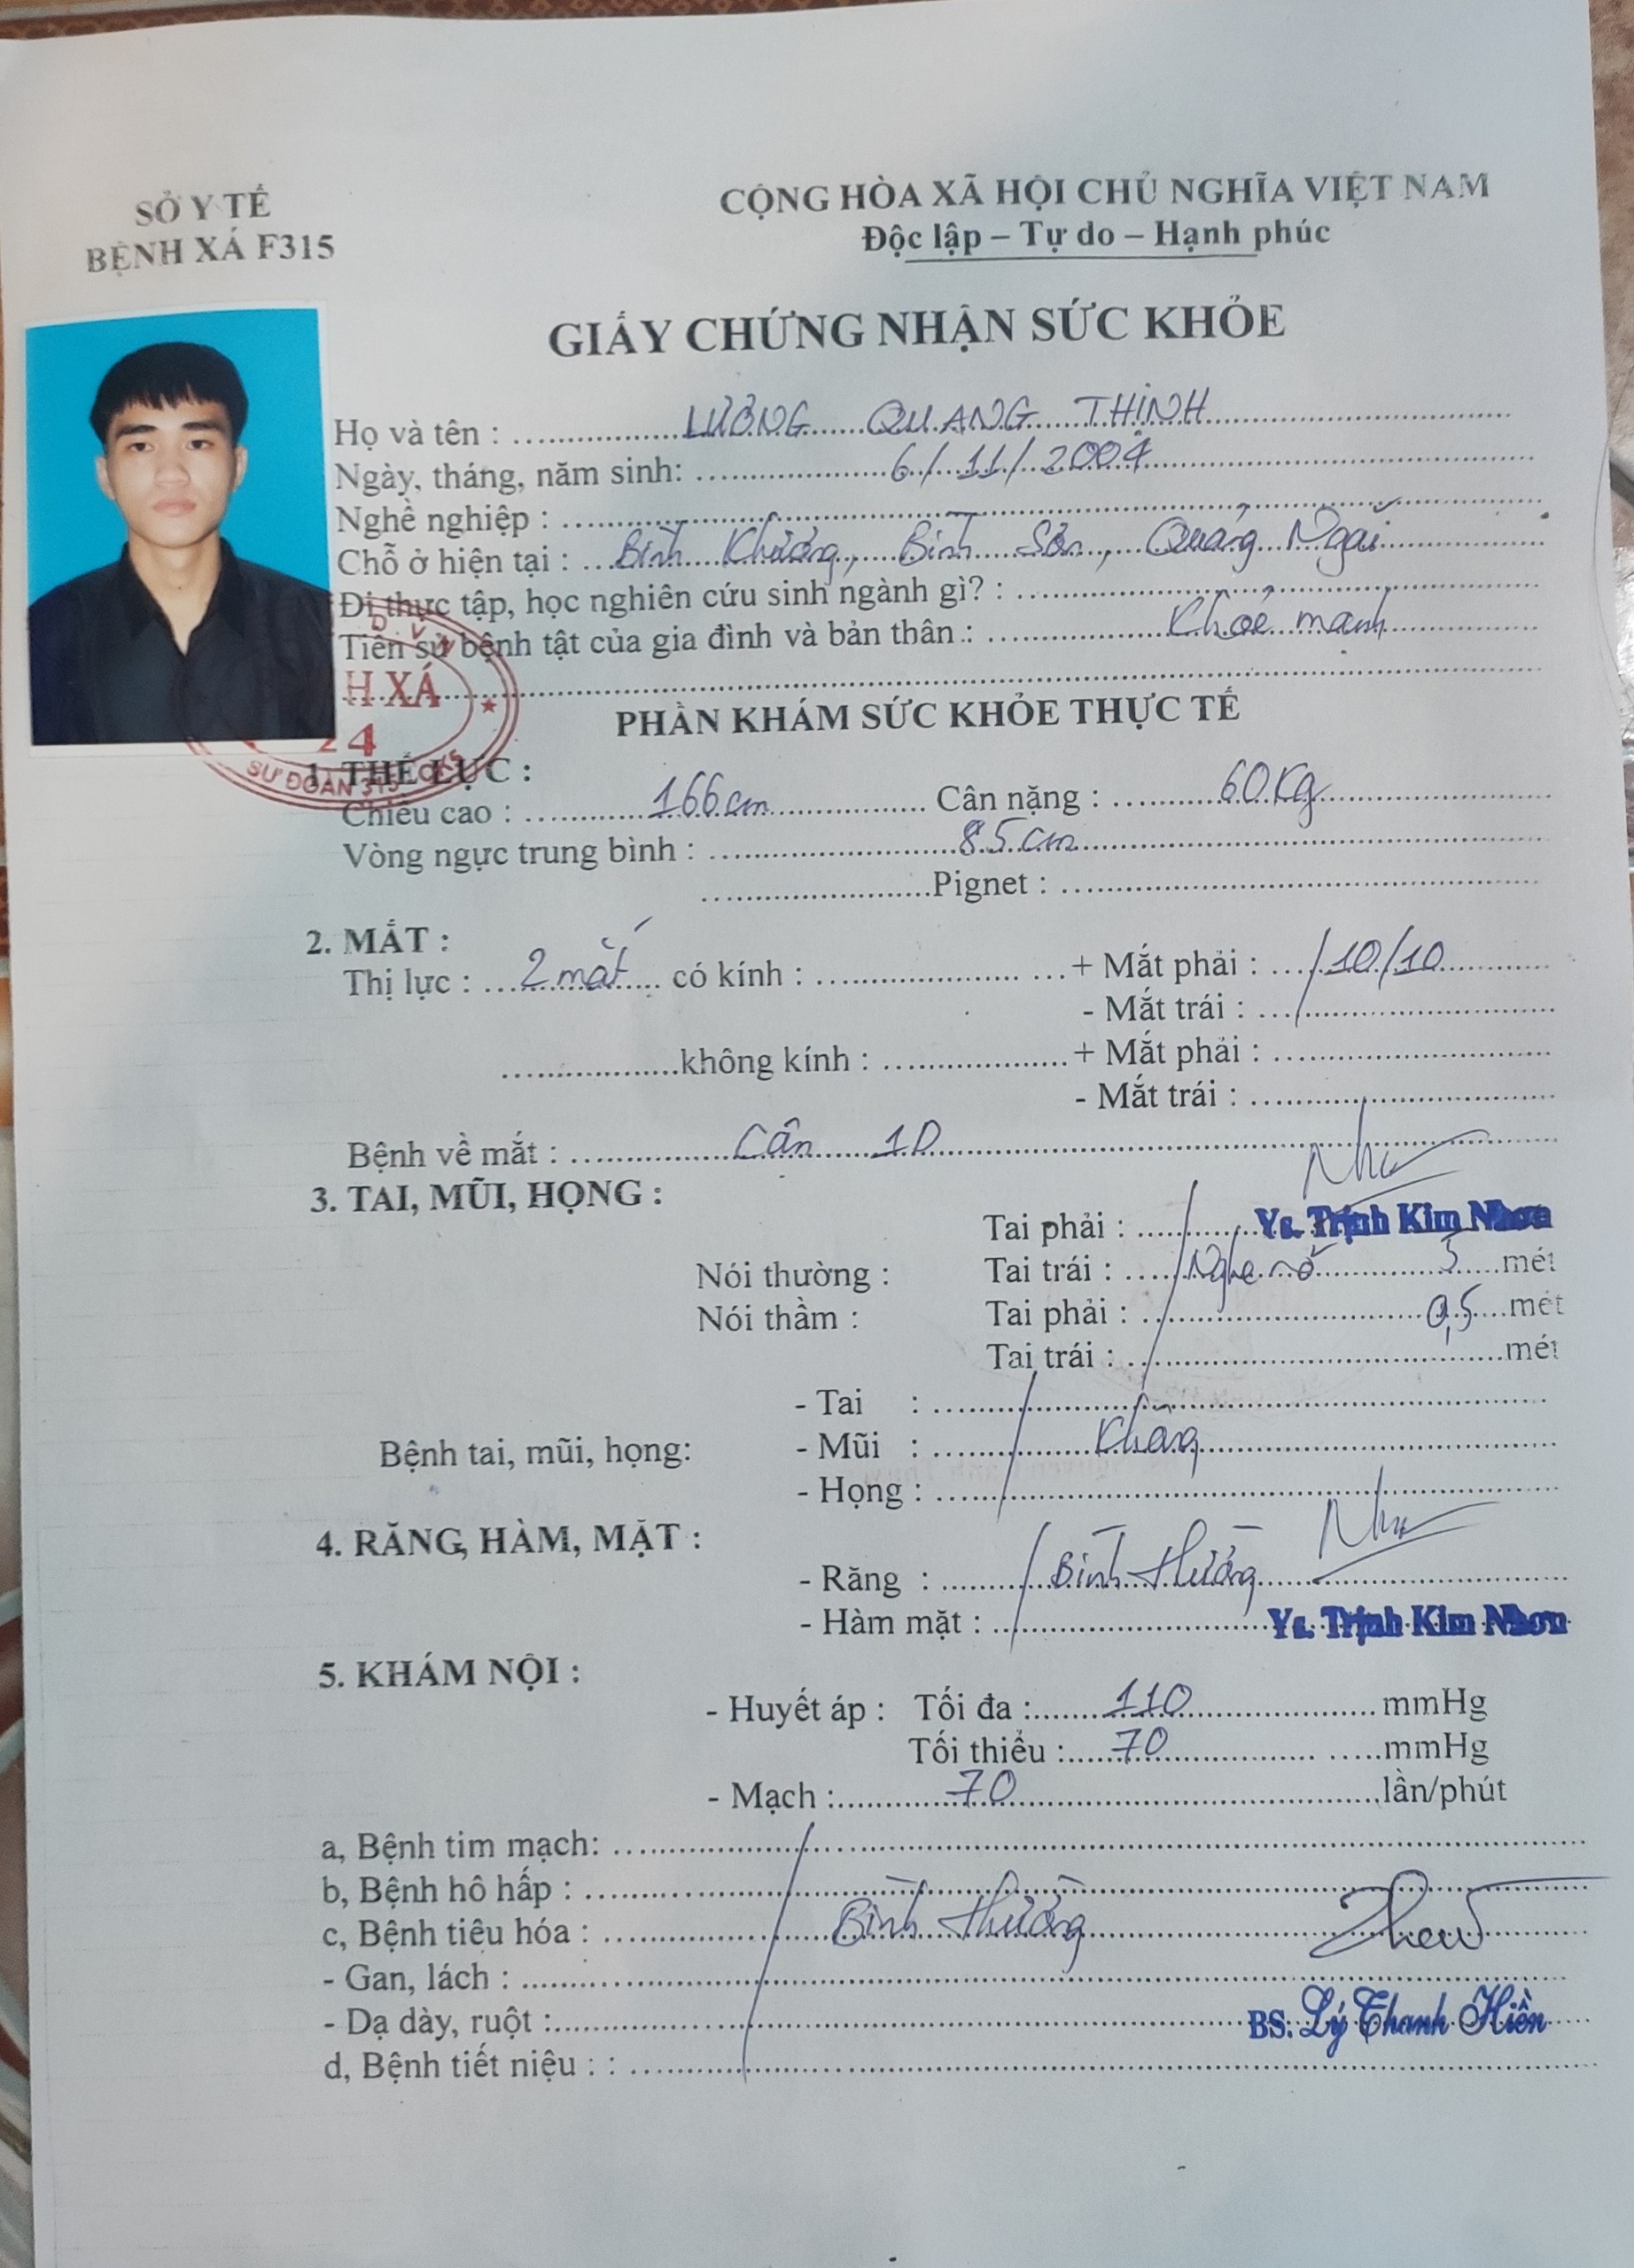 SỞ Y TẾ
BỆNH XÁ F315
CỘNG HÒA XÃ HỘI CHỦ NGHĨA VIỆT NAM
Độc lập – Tự do – Hạnh phúc
GIẤY CHỨNG NHẬN SỨC KHỎE
Họ và tên : LƯƠNG QUANG THỊNH
Ngày, tháng, năm sinh: 6/11/2004
Nghề nghiệp :
Chỗ ở hiện tại : Bình Khương, Bình Sơn, Quảng Ngãi
Đi thực tập, học nghiên cứu sinh ngành gì? :
Tiền sử bệnh tật của gia đình và bản thân : Khỏe mạnh
H XÁ
24
SƯ ĐOÀN 315
PHẦN KHÁM SỨC KHỎE THỰC TẾ
1. THỂ LỰC :
Chiều cao : 166cm Cân nặng : 60Kg
Vòng ngực trung bình : 85cm
Pignet :
2. MẮT :
Thị lực : 2 mắt có kính : + Mắt phải : 10/10
- Mắt trái :
không kính : + Mắt phải :
- Mắt trái :
Bệnh về mắt : Cận 1D
3. TAI, MŨI, HỌNG :
Tai phải : Ys. Trịnh Kim Nhơn
Nói thường : Tai trái : Nghe rõ 5 mét
Nói thầm : Tai phải : 0,5 mét
Tai trái : mét
- Tai :
Bệnh tai, mũi, họng: - Mũi : Không
- Họng :
4. RĂNG, HÀM, MẶT :
- Răng : Bình thường
- Hàm mặt : Ys. Trịnh Kim Nhơn
5. KHÁM NỘI :
- Huyết áp : Tối đa : 110 mmHg
Tối thiểu : 70 mmHg
- Mạch : 70 lần/phút
a, Bệnh tim mạch:
b, Bệnh hô hấp :
c, Bệnh tiêu hóa : Bình thường
- Gan, lách :
- Dạ dày, ruột : BS. Lý Thanh Hiền
d, Bệnh tiết niệu : :